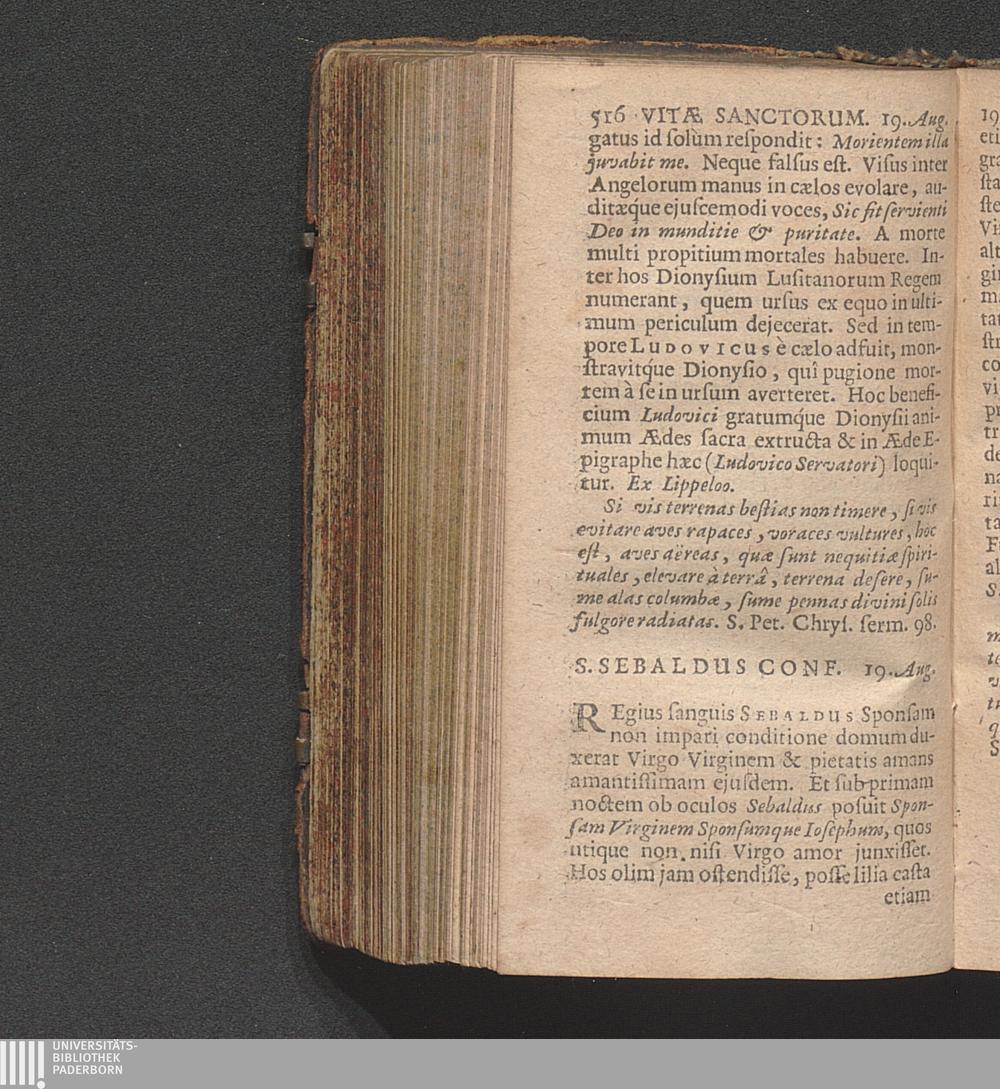 516 VITÆ SANCTORUM. 19. Aug.
gatus id ſolùm reſpondit: Morientem illa
juvabit me. Neque falſus eſt. Viſus inter
Angelorum manus in cælos evolare, au-
ditæq́ue ejuſcemodi voces, Sic fit ſervienti
Deo in munditie & puritate. A morte
multi propitium mortales habuere. In-
ter hos Dionyſium Luſitanorum Regem
numerant, quem urſus ex equo in ulti-
mum periculum dejecerat. Sed in tem-
pore LUDOVICUS è cælo adfuit, mon-
ſtravitq́ue Dionyſio, quî pugione mor-
tem à ſe in urſum averteret. Hoc benefi-
cium Ludovici gratumq́ue Dionyſii ani-
mum Ædes ſacra extructa & in Æde E-
pigraphe hæc (Ludovico Servatori) loqui-
tur. Ex Lippeloo.
Si vis terrenas beſtias non timere, ſi vis
evitare aves rapaces, voraces vultures, hoc
eſt, aves aëreas, quæ ſunt nequitiæ ſpiri-
tuales, elevare à terrâ, terrena deſere, ſu-
me alas columbæ, ſume pennas divini ſolis
fulgore radiatas. S. Pet. Chryſ. ſerm. 98.
S. SEBALDUS CONF. 19. Aug.
REgius ſanguis SEBALDUS Sponſam
non impari conditione domum du-
xerat Virgo Virginem & pietatis amans
amantiſſimam ejuſdem. Et ſub primam
noctem ob oculos Sebaldus poſuit Spon-
ſam Virginem Sponſumque Ioſephum, quos
utique non niſi Virgo amor junxiſſet.
Hos olim jam oſtendiſſe, poſſe lilia caſta
etiam
UNIVERSITÄTS-
BIBLIOTHEK
PADERBORN